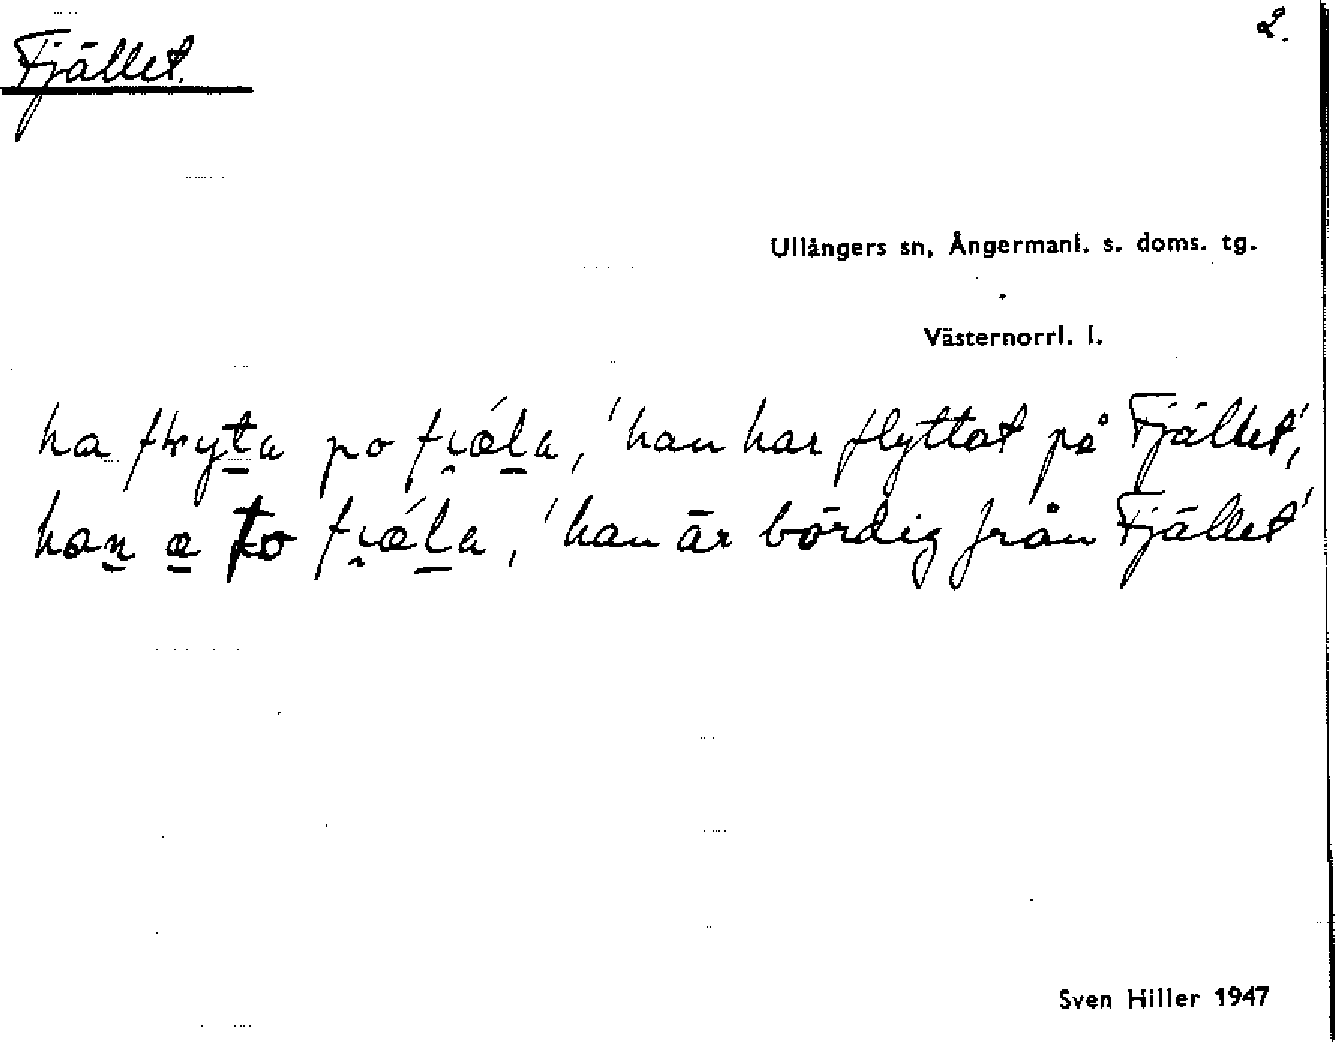 2.
Fjället.
Ullångers sn, Ångermanl. s. doms. tg.
Västernorrl. l.
ha po fi̯ǽl̲a, 'han har flyttat på Fjället',
han̲ æ̲ fi̯ǽl̲a, 'han är bördig från Fjället'
Sven Hiller 1947